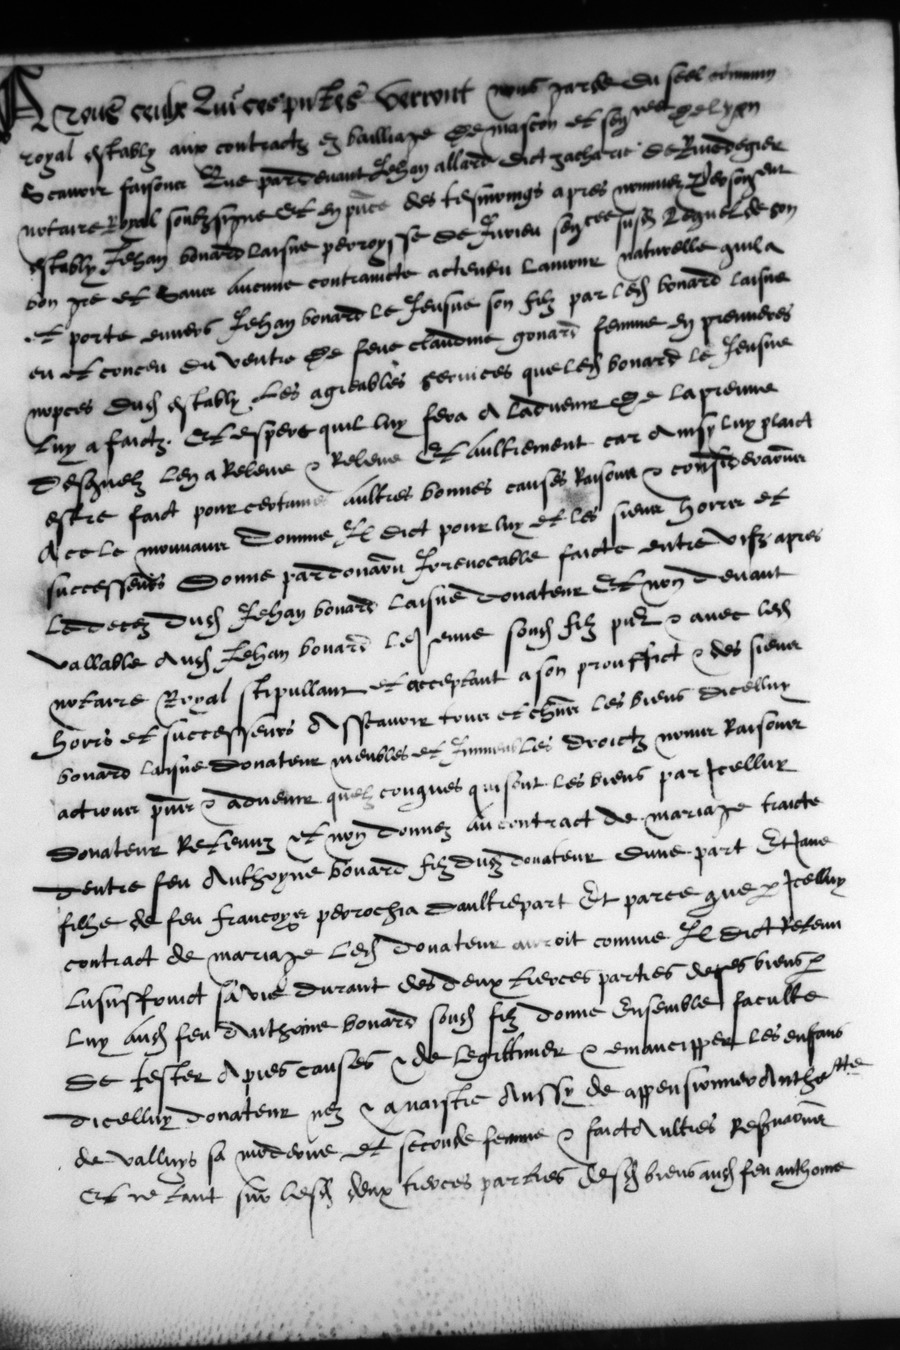 A tous ceulx qui ces pntes verront nous garde du seel commun
royal estably aux contractz en bailliage de mascon et sen de lyon
Scavoir faisons que pardevant Jehan allard dict zacharie de Rivedegier
notaire Royal soubzsigne et en pnce des tesmoings apres nommez
estably Jehan bonard laisne perroysse de Jurieu lequel de son
bon gre et sans aucune contraincte actendu lamour naturelle quil a
et porte envers Jehan bonard le Jeusne son filz par led bonard laisne
eu et conceu du ventre de feue claudine gonard femme en premieres
nopces dud estably Les agreables services que led bonard le Jeusne
luy a faictz Et espere quil luy fera A ladvenir De la preuve
Desquelz led a Releve & Releve Et aultrement car Ainsy luy plaict
estre faict pour certaines aultres bonnes causes Raisons &
A ce le mouvans Donne Il dict pour luy et les siens hoirs et
successeurs Donne par donaon Irrevocable faicte entre vifz apres
le decez dud Jehan bonard laisne donateur Et non devant
vallable Aud Jehan bonard le Jeune sond filz pnt & avec led
notaire Royal stipullant et acceptant a son prouffict & des siens
hoirs et successeurs Asscavoir tous et chns les biens dicelluy
bonard laisne donateur meubles et Immeubles droictz noms Raisons
actions pns & advenir quelz conques qui sont les biens par Icelluy
donateur Retenuz et non donnez au contract de mariage traicte
dentre feu Anthoyne bonard filz dud donateur dune part Et Jane
filhe de feu francoys perrochia daultre part Et parce que p Icelluy
contract de mariage led donateur auroit comme Il dict Retenu
lusuffruict sa vie durant des deux tierces parties de ses biens p
luy aud feu Anthoine bonard sond filz donne Ensemble faculte
de tester A pies causes & de legittimer & emancipper les enfans
dicelluy donateur nez & a naistre Aussy de appensionner Anthtte
de valluys sa moderne et seconde femme & faict Aultres
Et ce tant sur lesd deux tierces parties desd biens aud feu anthoine